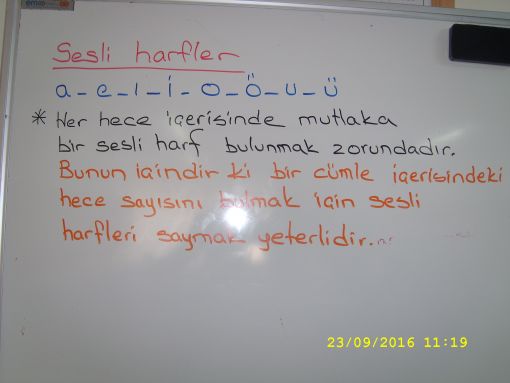 Sesli harfler
a - e - ı - i - o - ö - u - ü
* Her hece içerisinde mutlaka
bir sesli harf bulunmak zorundadır.
Bunun içindir ki bir cümle içerisindeki
hece sayısını bulmak için sesli
harfleri saymak yeterlidir.
23/09/2016 11:19